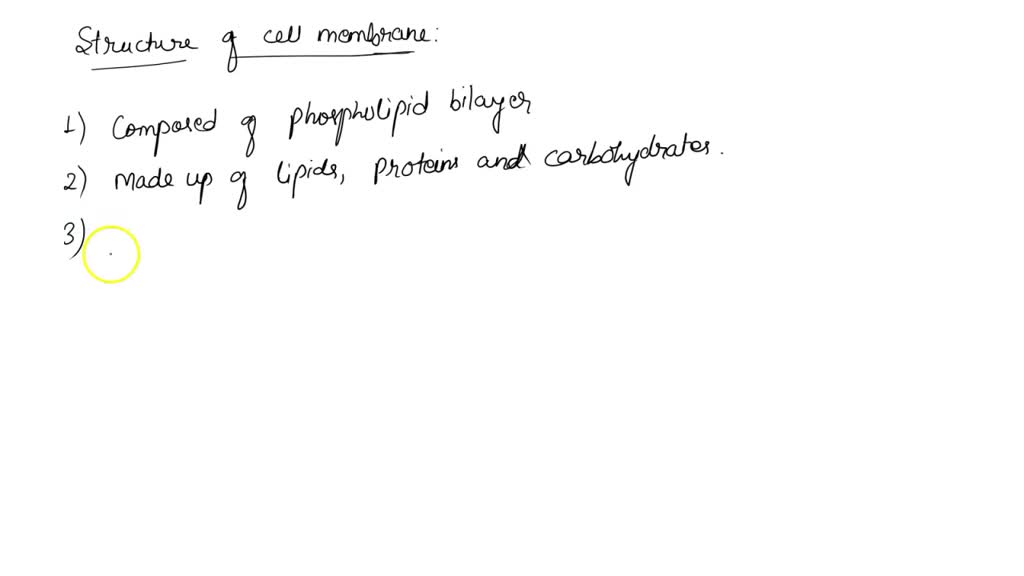 Structure of cell membrane:
1) Composed of phospholipid bilayer
2) Made up of lipids, proteins and carbohydrates.
3)